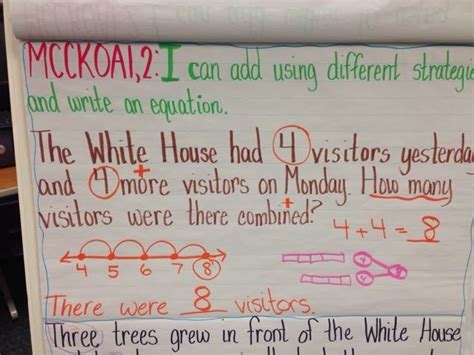 MCCKOA1,2: I can add using different strategie
and write an equation.
The White House had 4 visitors yesterda
and 4 more visitors on Monday. How many
visitors were there combined?
+
+
4 + 4 = 8
4 5 6 7 8
There were 8 visitors.
Three trees grew in front of the White House